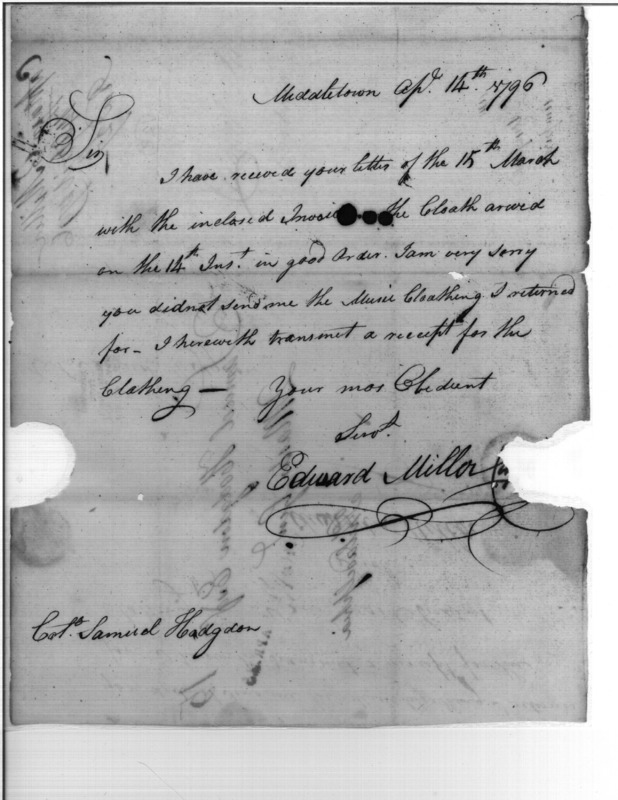 Middletown Apl. 14th 1796
Sir
I have receved your letter of the 15th March
with the inclosed Invoi the Cloath arived
on the 14th Inst. in good Order. I am very sorry
you did not send me the Music Cloathing I returned
for - I herewith transmet a receipt for the
Clothing — Your mos Obedient
Servt.
Edward Miller
Colo. Samuel Hodgdon